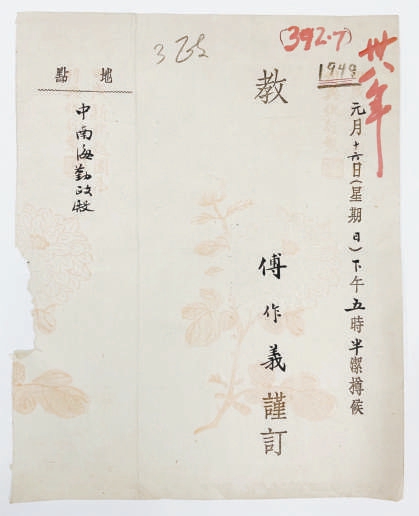 (392.7)
卅八年
1949
元月十六日(星期日)下午五時半潔撙候
教
傅作義謹訂
地點
中南海勤政殿